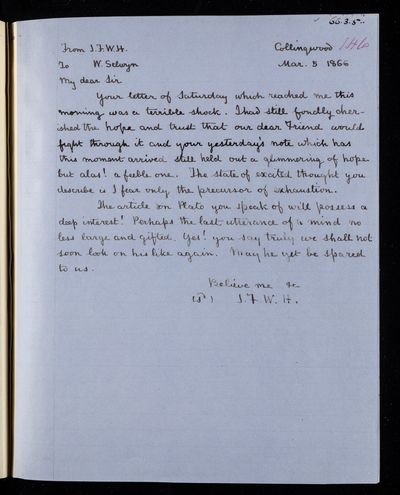 66.3.5.
From J.F.W.H. Collingwood
To W. Selwyn Mar. 5 1866
My dear Sir
Your letter of Saturday which reached me this
morning was a terrible shock. I had still fondly cher-
ished the hope and trust that our dear Friend would
fight through it and your yesterday's note which has
this moment arrived still held out a glimmering of hope
but alas! a feeble one. The state of excited thought you
describe is I fear only the precursor of exhaustion.
The article on Plato you speak of will possess a
deep interest! Perhaps the last utterance of a mind no
less large and gifted. Yes! you say truly we shall not
soon look on his like again. May he yet be spared
to us.
Believe me &c
J.F.W.H.